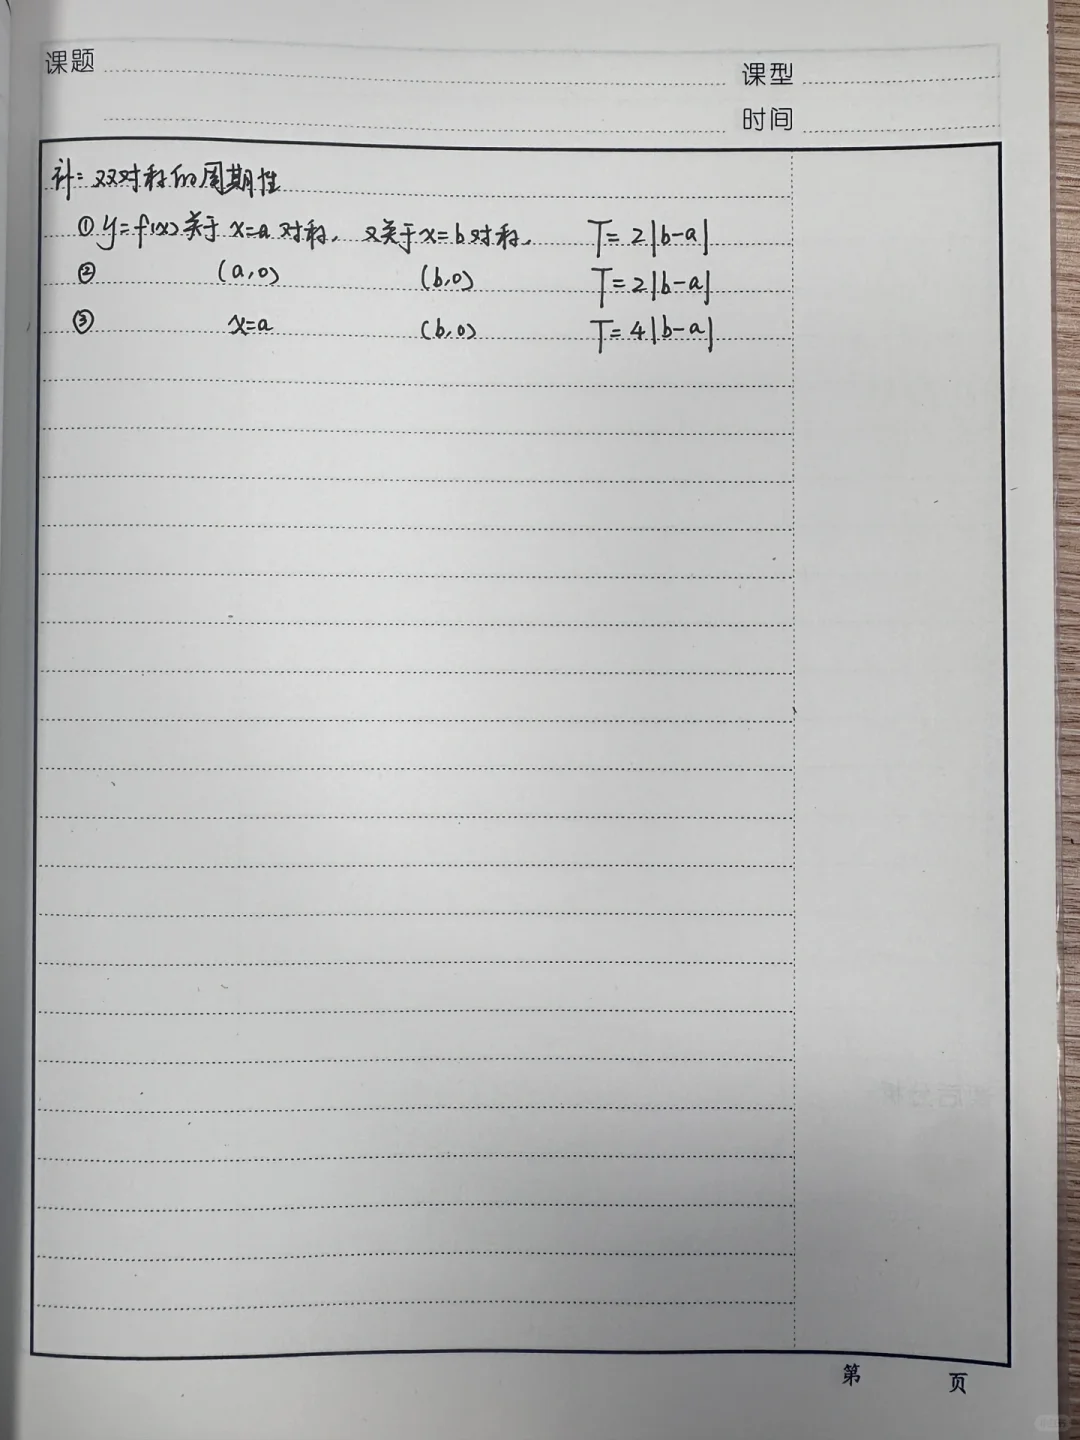 课题
课型
时间
补：双对称的周期性
① y=f(x)关于 x=a 对称，又关于 x=b 对称， T=2|b-a|
② (a,0) (b,0) T=2|b-a|
③ x=a (b,0) T=4|b-a|
第 页